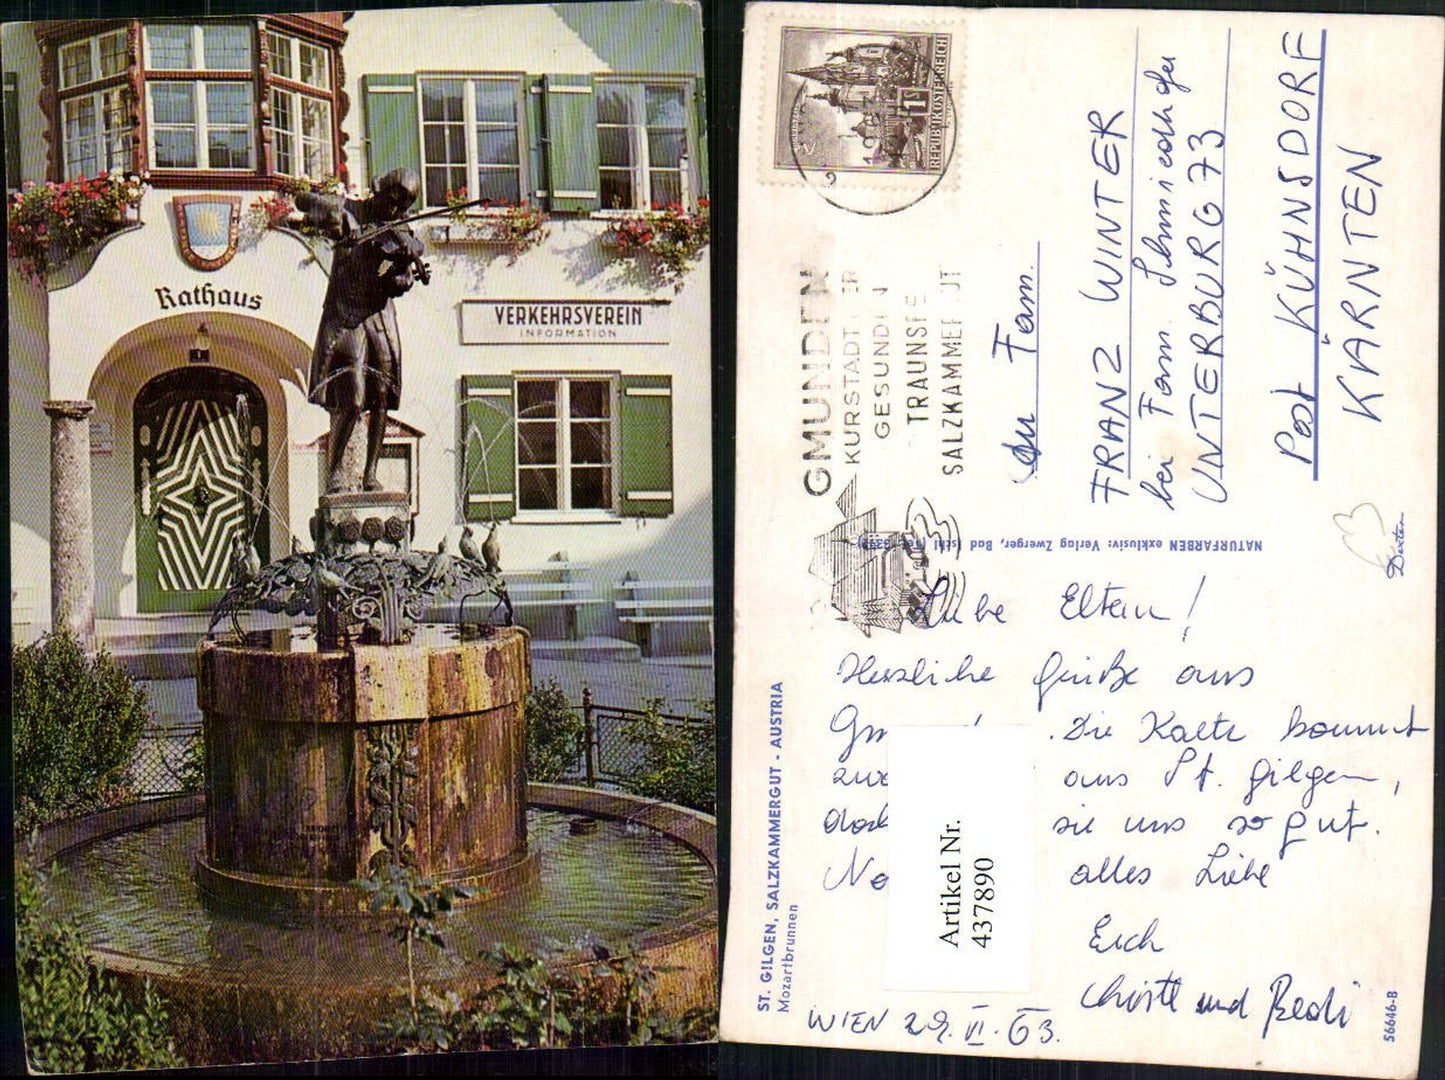 Rathaus
VERKEHRSVEREIN
INFORMATION
1
REPUBLIK ÖSTERREICH
GMUNDEN
KURSTADT
GESUNDEN
TRAUNSEE
SALZKAMMERGUT
An Fam.
FRANZ WINTER
bei Fam.
UNTERBURG 73
Post KÜHNSDORF
KÄRNTEN
NATURFARBEN exklusiv: Verlag Zwerger, Bad Ischl
Dexter
Liebe Eltern!
Herzliche Grüße aus
Gm . Die Karte kommt
zwa aus St. Gilgen,
doch sie uns so gut.
No alles Liebe
Euch
Christl und Pedi
WIEN 29. VI. 63.
Artikel Nr.
437890
ST. GILGEN, SALZKAMMERGUT - AUSTRIA
Mozartbrunnen
56646-B